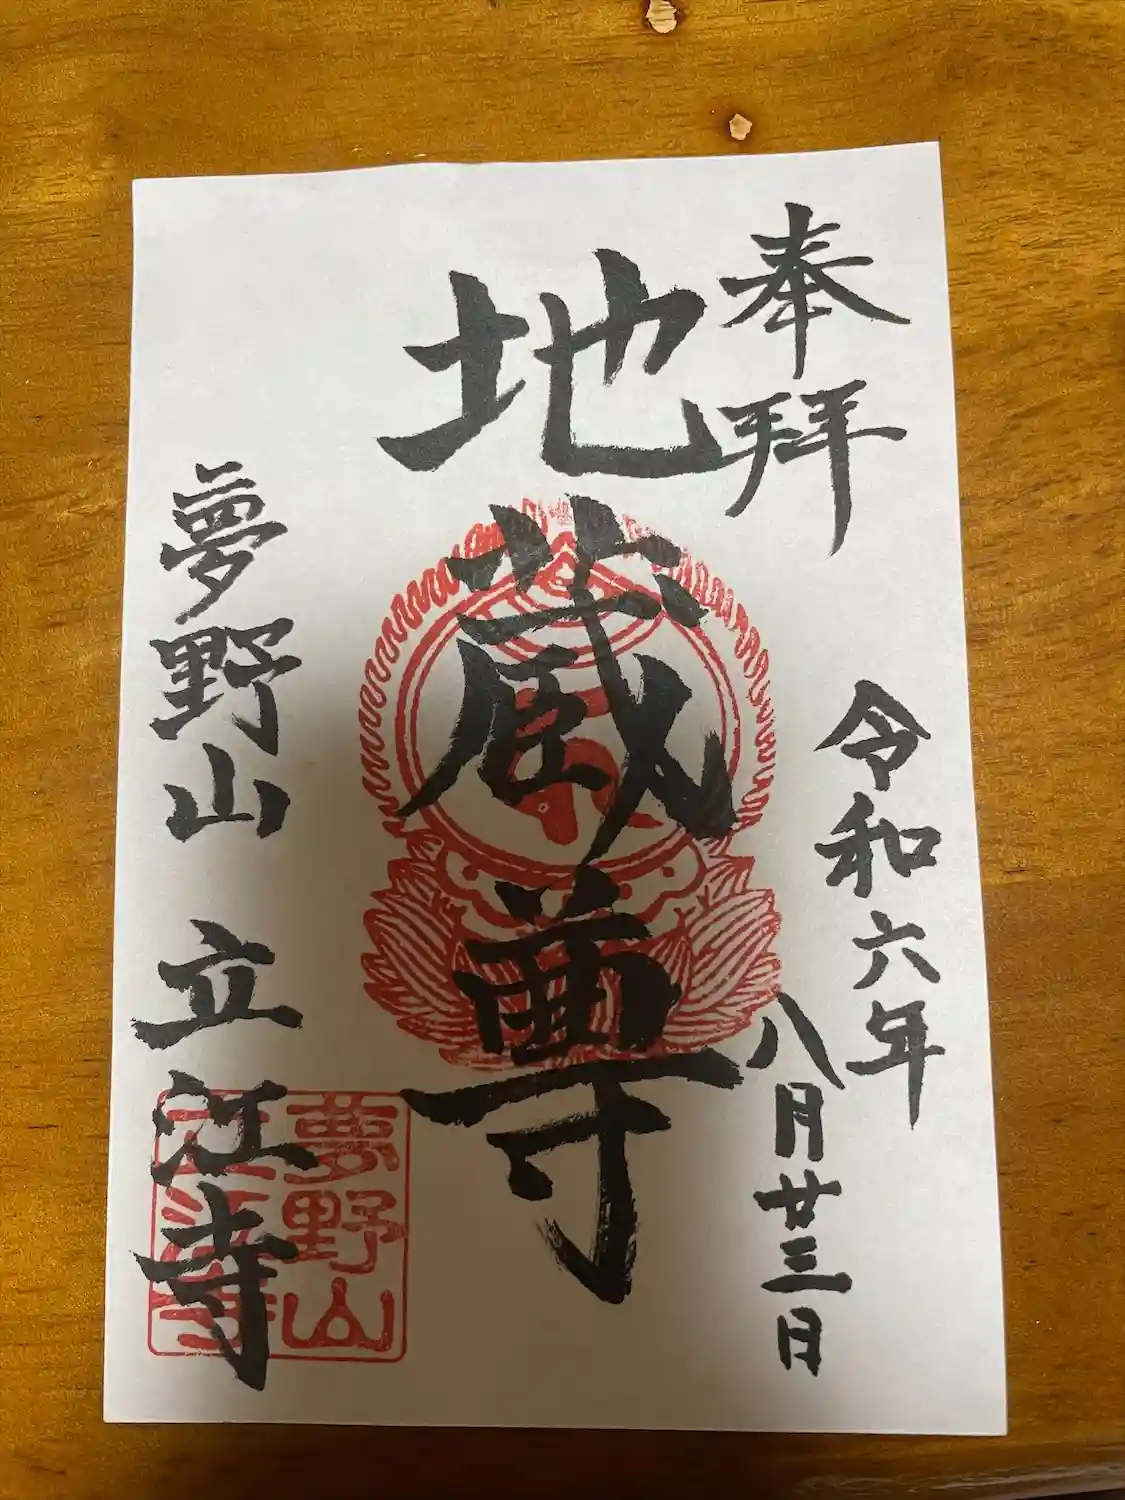 奉拝
令和六年
八月廿三日
地蔵尊
夢野山 立江寺
夢野山
立江寺